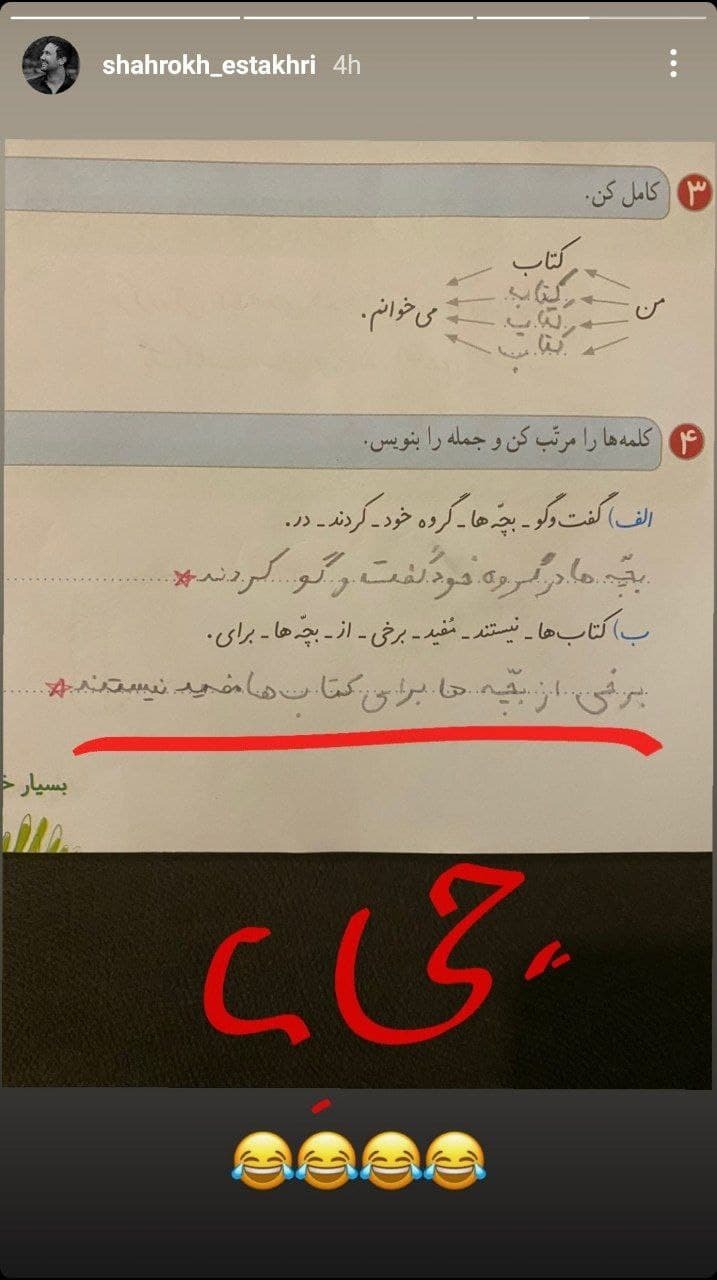 shahrokh_estakhri 4h
۳ کامل کن.
کتاب
من کتاب می‌خوانم.
کتاب
کتاب
۴ کلمه‌ها را مرتّب کن و جمله را بنویس.
الف) گفت‌وگو ـ بچّه‌ها ـ گروه خود ـ کردند ـ در.
بچّه ها در گروه خود گفت و گو کردند
ب) کتاب‌ها ـ نیستند ـ مُفید ـ برخی ـ از ـ بچّه‌ها ـ برای.
برخی از بچّه ها برای کتاب ها مفید نیستند
بسیار خ
😂😂😂😂